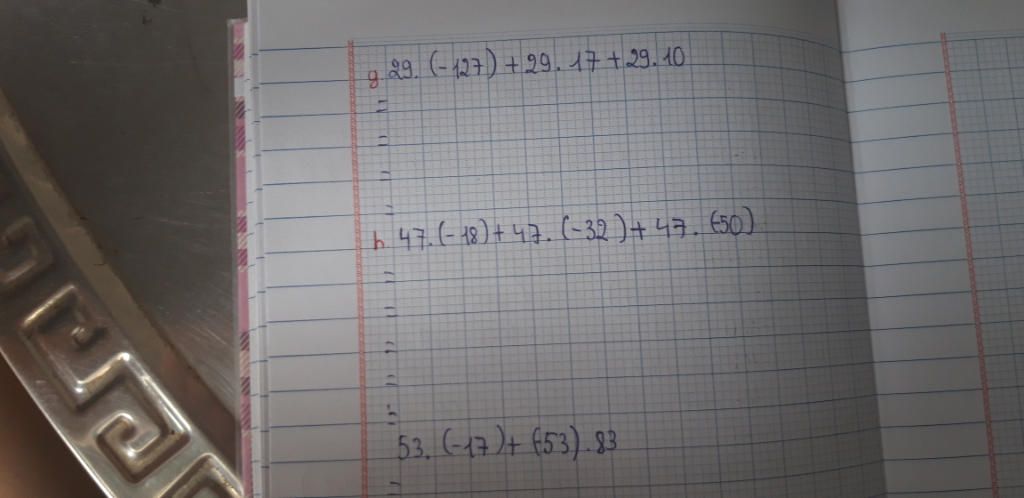 g 29. (-127) + 29. 17 + 29. 10
=
=
=
=
h 47. (-18) + 47. (-32) + 47. (-50)
=
=
=
=
=
53. (-17) + (-53). 83
=